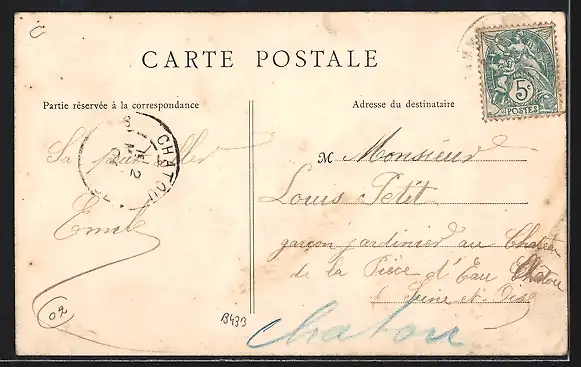 CARTE POSTALE
Partie réservée à la correspondance
Adresse du destinataire
5c
POSTES
CHATOU
M Monsieur
Louis Petit
garçon jardinier au Chalet
de la Pièce d'Eau Chatou
Seine et Oise
Emile
02
B439
Chatou